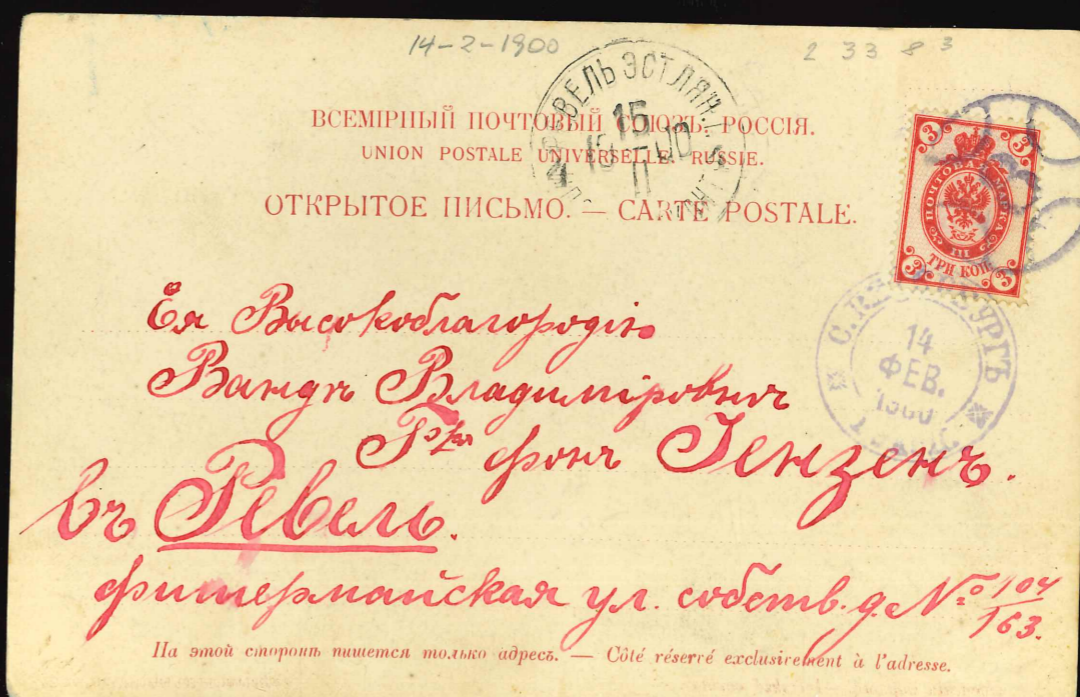 14-2-1900
2 33 8 3
РЕВЕЛЬ ЭСТЛЯН.
15
4 1900
II
ВСЕМІРНЫЙ ПОЧТОВЫЙ СОЮЗЪ. РОССІЯ.
UNION POSTALE UNIVERSELLE. RUSSIE.
ОТКРЫТОЕ ПИСЬМО. — CARTE POSTALE.
3 3
ПОЧТОВАЯ МАРКА
III
ТРИ КОП.
3 3
С. ПЕТЕРБУРГЪ
14
ФЕВ.
1900
Ея Высокоблагородію
Вандѣ Владиміровнѣ
фонъ Іензенъ.
въ Ревель.
фишермайская ул. собств. д. № 104/163.
На этой сторонѣ пишется только адресъ. — Côté réservé exclusivement à l'adresse.